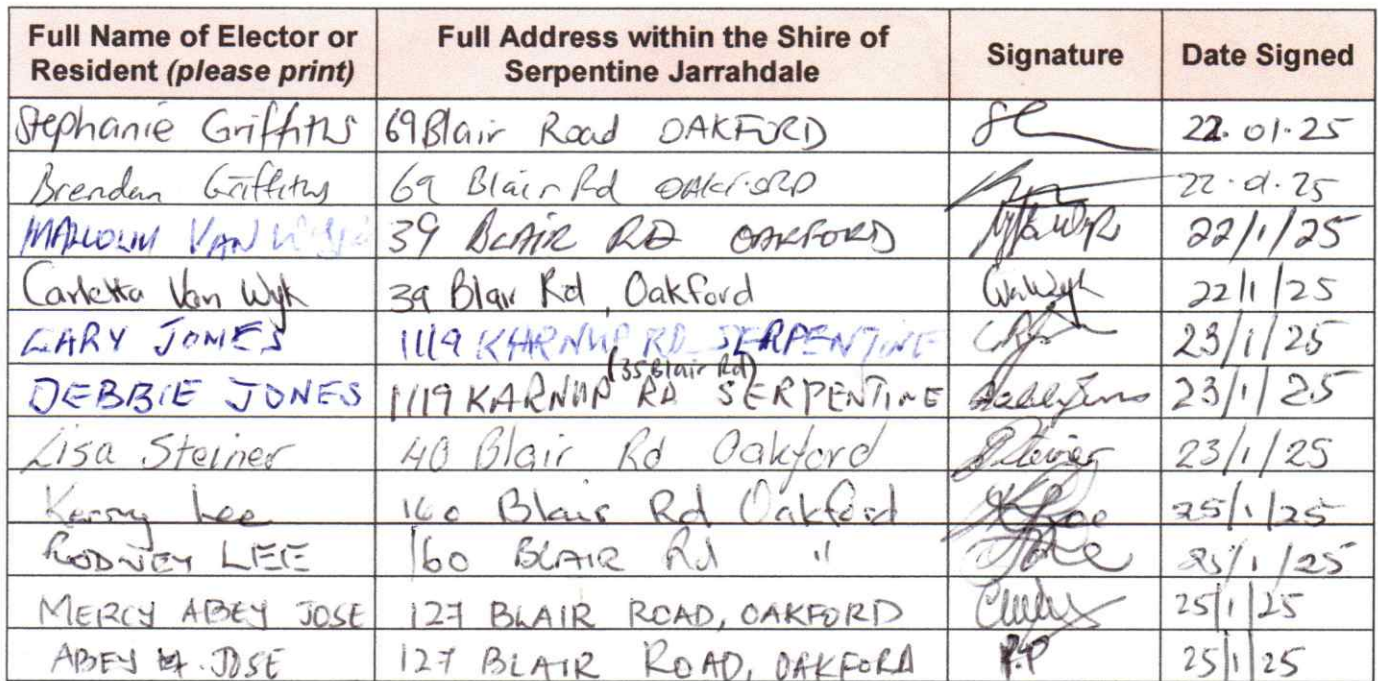 Full Name of Elector or Resident (please print) Full Address within the Shire of Serpentine Jarrahdale Signature Date Signed
Stephanie Griffiths 69 Blair Road OAKFORD 22.01.25
Brendan Griffiths 69 Blair Rd OAKFORD 22.01.25
MALCOLM VAN 39 BLAIR RD OAKFORD 22/1/25
Carletta Van Wyk 39 Blair Rd, Oakford 22/1/25
GARY JONES 1119 KARNUP RD SERPENTINE 23/1/25
(35 Blair Rd)
DEBBIE JONES 1119 KARNUP RD SERPENTINE 23/1/25
Lisa Steiner 40 Blair Rd Oakford 23/1/25
Kerry Lee 160 Blair Rd Oakford 25/1/25
RODNEY LEE 160 BLAIR Rd " 25/1/25
MERCY ABEY JOSE 127 BLAIR ROAD, OAKFORD 25/1/25
ABEY JOSE 127 BLAIR ROAD, OAKFORD P.P 25/1/25